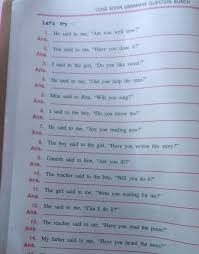 CLASS SEVEN GRAMMAR QUESTION BUNCH
Let's Try
1. He said to me, "Are you well now?"
Ans.
2. You said to me, "Have you done it?"
Ans.
3. I said to the girl, "Do you like sweet?"
Ans.
4. He said to me, "Did you help the man?"
Ans.
5. Mita said to Rita, "Will you sing?"
Ans.
6. I said to the boy, "Do you know me?"
Ans.
7. He said to me, "Are you reading now?"
Ans.
8. The boy said to the girl, "Have you written this story?"
Ans.
9. Ganesh said to him, "Are you ill?"
Ans.
10. The teacher said to the boy, "Will you do it?"
Ans.
11. The girl said to me, "Were you waiting for me?"
Ans.
12. She said to me, "Can I do it?"
Ans.
13. The teacher said to me, "Have you read the poem?"
Ans.
14. My father said to me, "Have you heard the news?"
Ans.